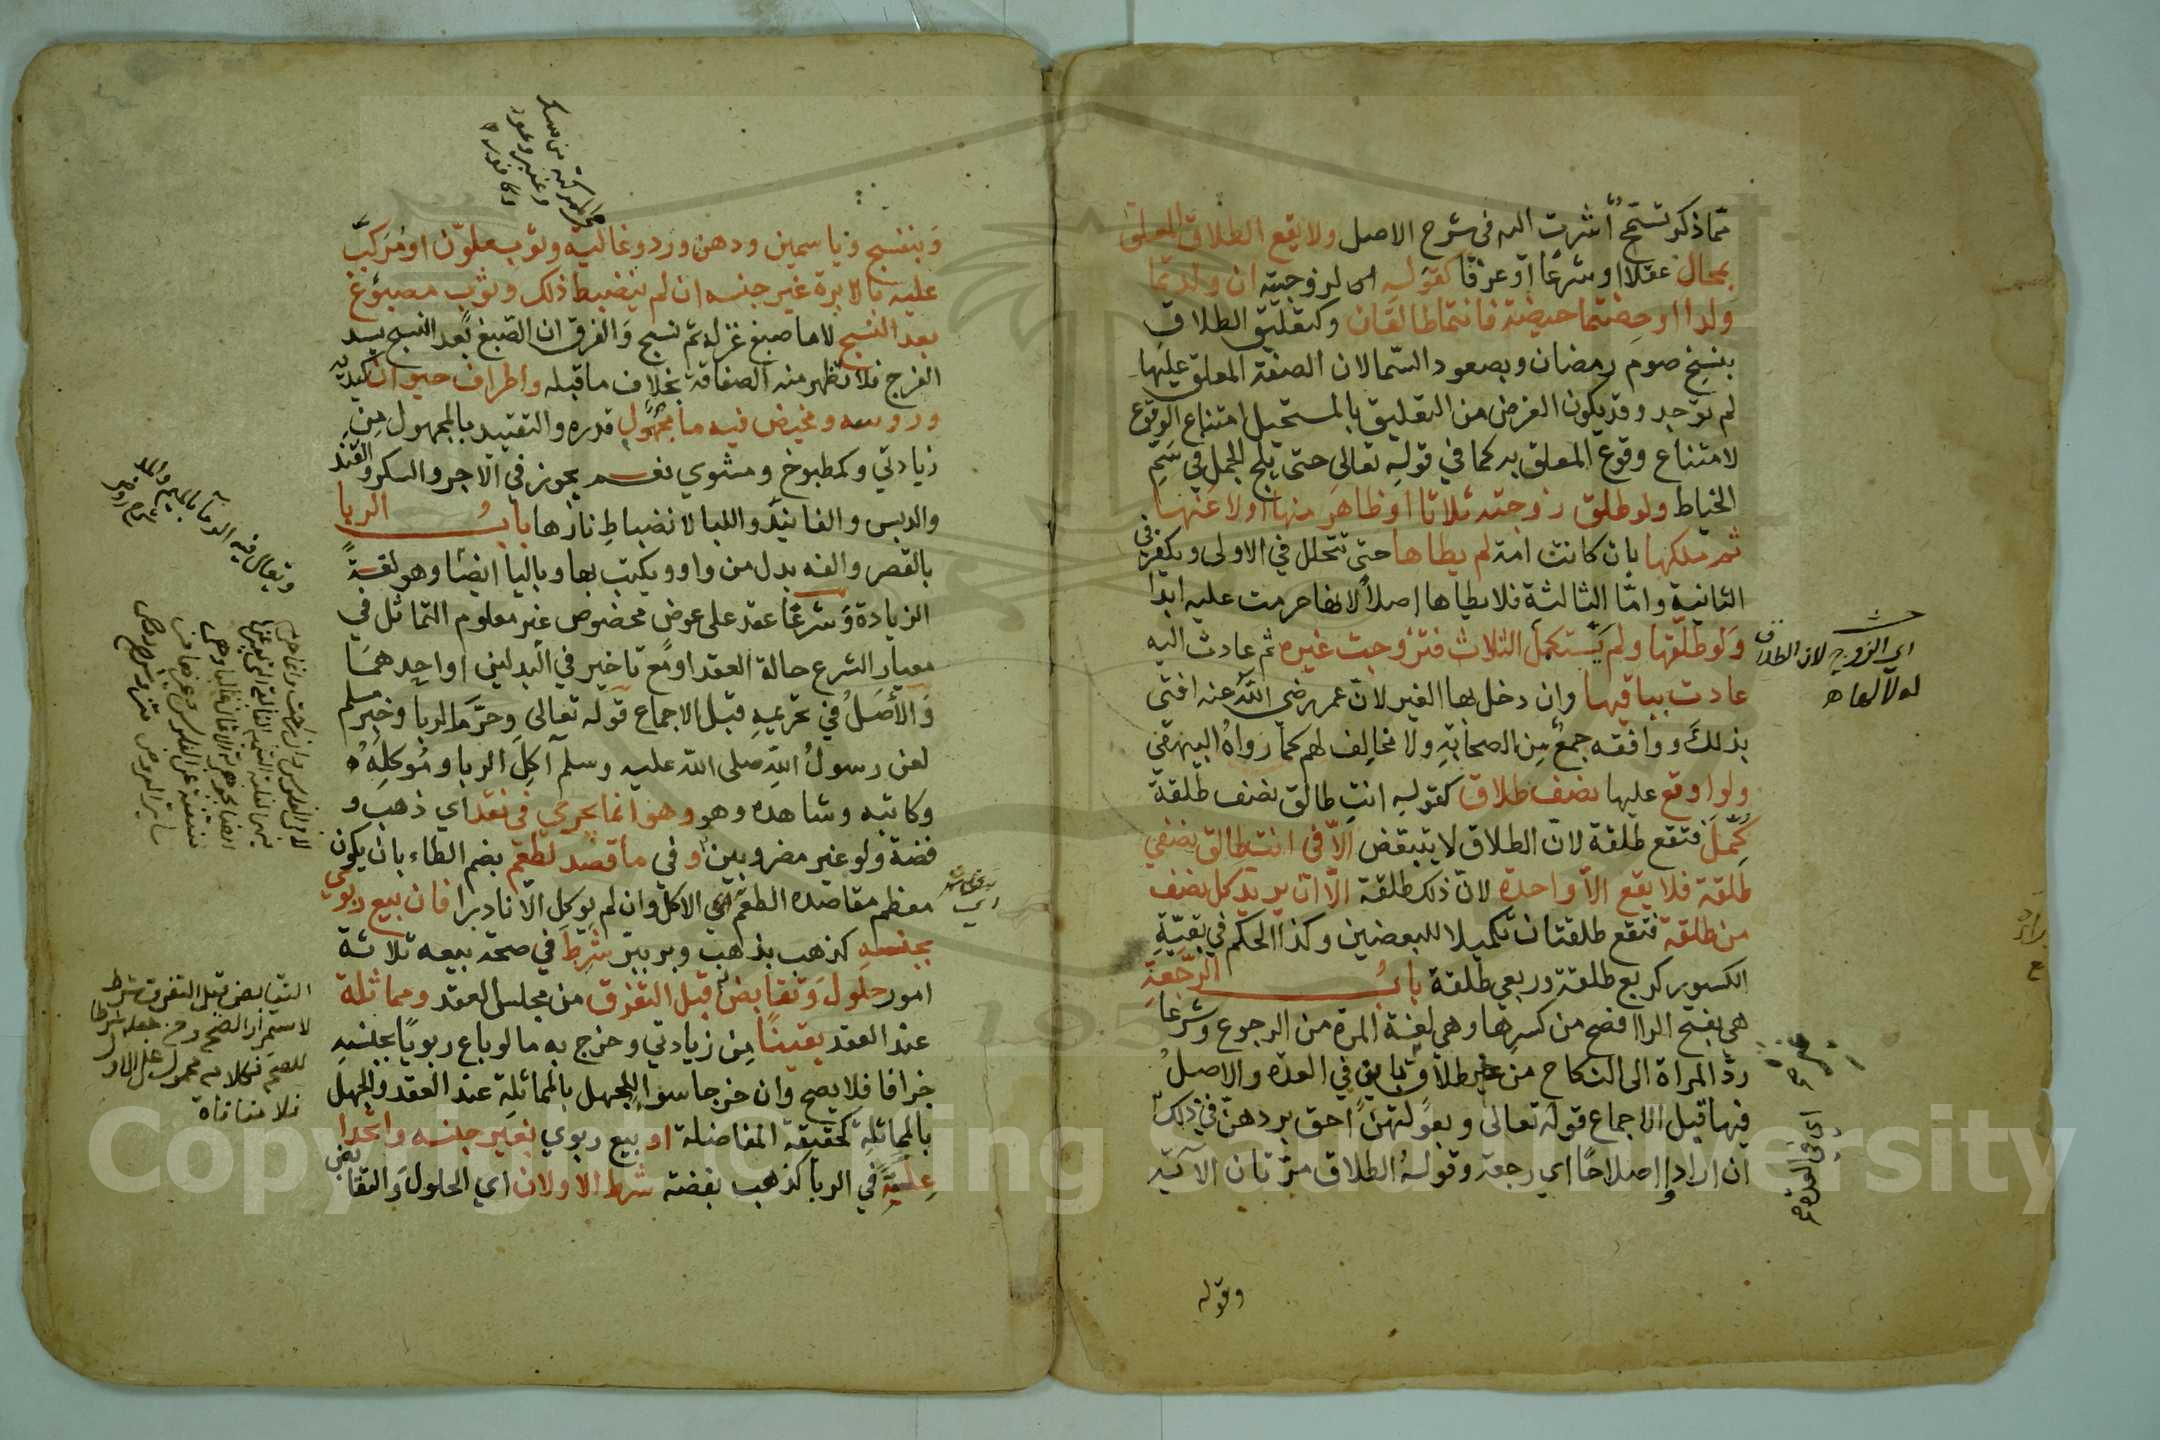 مما ذكر تسمح أشرت اليه في شرح الاصل ولا يقع الطلاق المعلق
بمحال عقلا او شرعا او عرفا كقوله اى لزوجتيه ان ولدتما
ولدا او حضتما حيضة فانتما طالقان وكتعليق الطلاق
بنسخ صوم رمضان وبصعود السما لان الصفة المعلق عليها
لم توجد وقد يكون الغرض من التعليق بالمستحيل امتناع الوقوع
لامتناع وقوع المعلق به كما في قوله تعالى حتى يلج الجمل في سم
الخياط ولو طلق زوجته ثلاثا او ظاهر منها او لاعنها
ثم ملكها بان كانت امة لم يطاها حتى تحلل في الاولى ويكفر في
الثانية واما الثالثة فلا يطاها اصلا لانها حرمت عليه ابدا
ولو طلقها ولم يستكمل الثلاث فتزوجت غيره ثم عادت اليه
عادت بباقيها وان دخل بها الغير لان عمر رضي الله عنه افتى
بذلك ووافقه جمع من الصحابة ولا مخالف لهم كما رواه البيهقي
ولو اوقع عليها نصف طلاق كقوله انت طالق نصف طلقة
كمل فتقع طلقة لان الطلاق لا يتبعض الا في انت طالق نصفي
طلقة فلا يقع الا واحدة لان ذلك طلقة الا ان يريد كل نصف
من طلقة فتقع طلقتان تكميلا للبعضين وكذا الحكم في بقية
الكسور كربع طلقة وربعي طلقة باب الرجعة
هي بفتح الرا افصح من كسرها وهي لغة المرة من الرجوع وشرعا
رد المراة الى النكاح من غير طلاق باين في العدة والاصل
فيها قبل الاجماع قوله تعالى وبعولتهن احق بردهن في ذلك
ان ارادوا اصلاحا اي رجعة وقوله الطلاق مرتان الآية
وقوله
اي الزوج لان الطلاق
اي في العدة
وبنفسج وياسمين ودهن ورد وغالية وثوب ملون او مركب
عليه بالابرة غير جنسه ان لم ينضبط ذلك وثوب مصبوغ
بعد النسج لا ما صبغ غزله ثم نسج والفرق ان الصبغ بعد النسج يسد
الفرج فلا تظهر منه الصفاقة بخلاف ما قبله واطراف حيوان كيديه
وروسه ومخيض فيه ما مجهول قدره والتقييد بالمجهول من
زيادتي وكمطبوخ ومشوي نعم يجوز في الآجر والسكر والقند
والدبس والفانيد واللبا لانضباط نارها باب الربا
بالقصر والفه بدل من واو ويكتب بها وباليا ايضا وهو لغة
الزيادة وشرعا عقد على عوض مخصوص غير معلوم التماثل في
معيار الشرع حالة العقد او مع تاخير في البدلين او احدهما
والأصل في تحريمه قبل الاجماع قوله تعالى وحرم الربا وخبر مسلم
لعن رسول الله صلى الله عليه وسلم آكل الربا وموكله
وكاتبه وشاهده وهو وهو انما يحرم في نقد اي ذهب و
فضة ولو غير مضروبين وفي ما قصد لطعم بضم الطاء بان يكون
معظم مقاصده الطعم اي الاكل وان لم يوكل الا نادرا فان بيع ربوي
بجنسه كذهب بذهب وبر ببر شرط في صحة بيعه ثلاثة
امور حلول وتقابض قبل التفرق من مجلس العقد ومماثلة
عند العقد يقينا من زيادتي وخرج به ما لو باع ربويا بجنسه
جزافا فلا يصح وان خرجا سوا للجهل بالمماثلة عند العقد والجهل
بالمماثلة كحقيقة المفاضلة او بيع ربوي بغير جنسه واتحدا
علة في الربا كذهب بفضة شرط الاولان اي الحلول والتقابض
مركبة من مسك
وعنبر وعود
وكافور
التقابض قبل التفرق شرط
لاستمرار الصحة ومن جعله شرطا
للصحة فكلامه محمول على الاول
فلا منافاة
Copyright © King Saud University